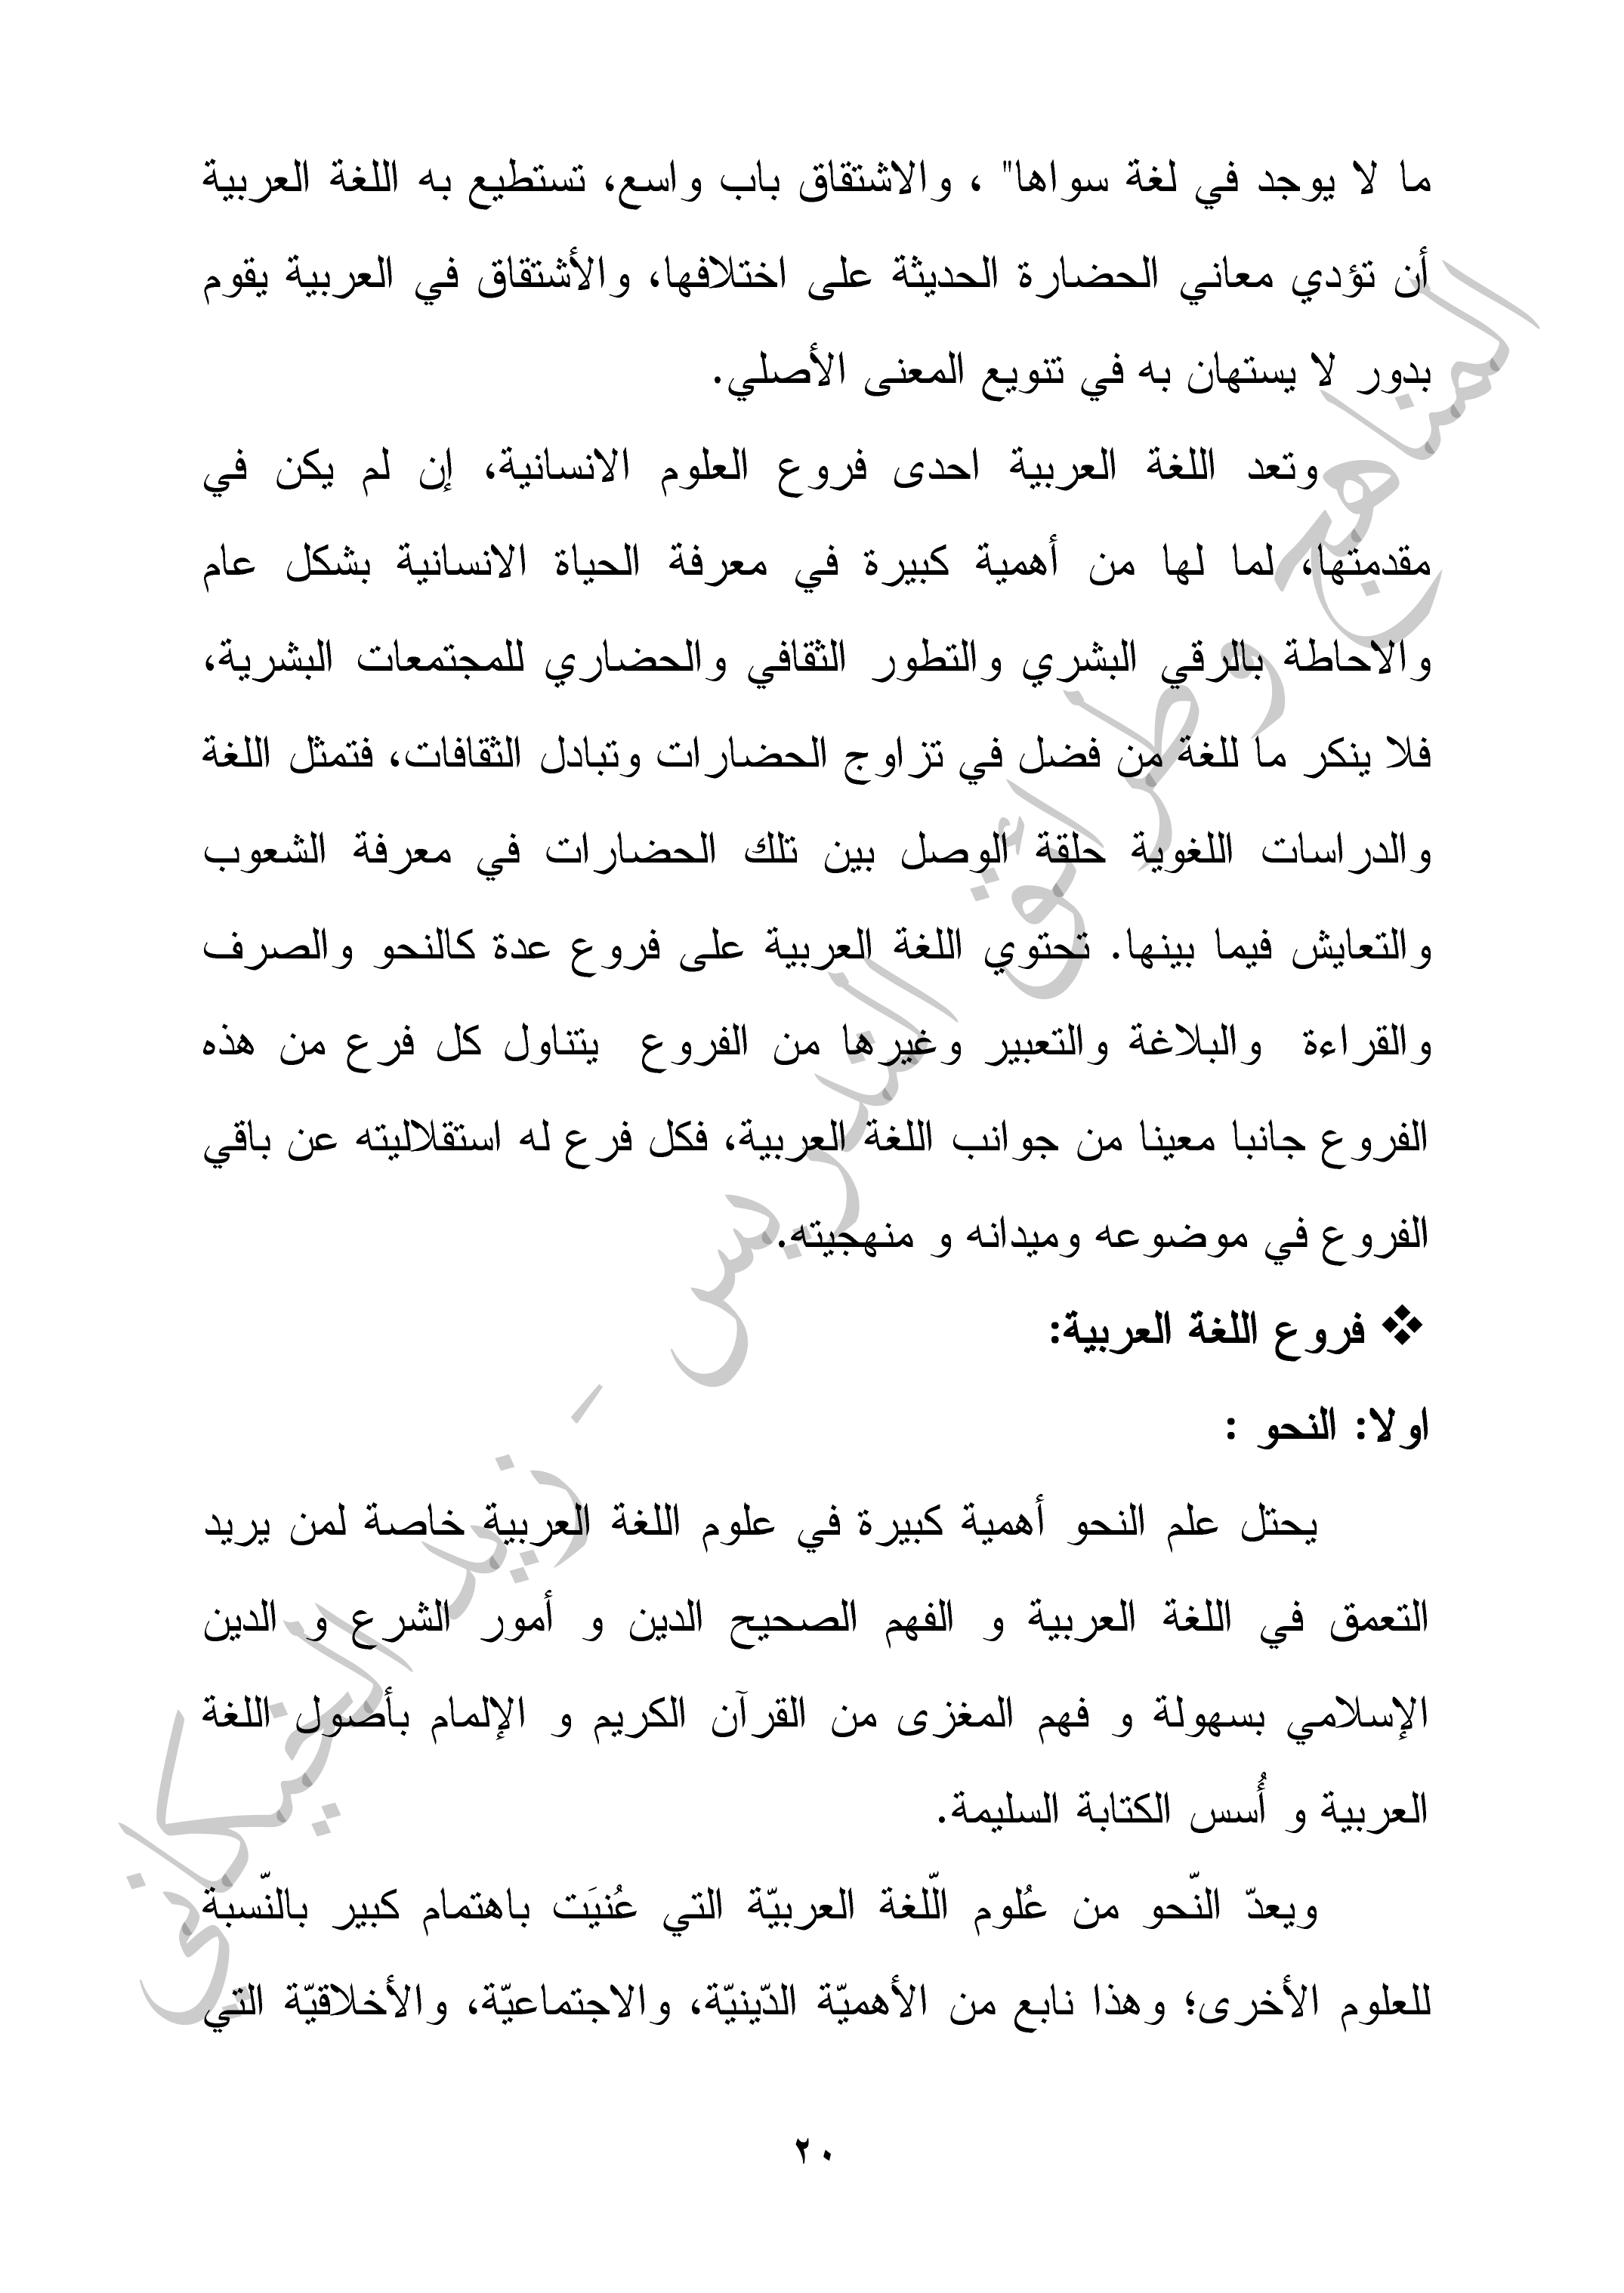 ما لا يوجد في لغة سواها" ، والاشتقاق باب واسع، تستطيع به اللغة العربية
أن تؤدي معاني الحضارة الحديثة على اختلافها، والأشتقاق في العربية يقوم
بدور لا يستهان به في تنويع المعنى الأصلي.
وتعد اللغة العربية احدى فروع العلوم الانسانية، إن لم يكن في
مقدمتها، لما لها من أهمية كبيرة في معرفة الحياة الانسانية بشكل عام
والاحاطة بالرقي البشري والتطور الثقافي والحضاري للمجتمعات البشرية،
فلا ينكر ما للغة من فضل في تزاوج الحضارات وتبادل الثقافات، فتمثل اللغة
والدراسات اللغوية حلقة الوصل بين تلك الحضارات في معرفة الشعوب
والتعايش فيما بينها. تحتوي اللغة العربية على فروع عدة كالنحو والصرف
والقراءة والبلاغة والتعبير وغيرها من الفروع يتناول كل فرع من هذه
الفروع جانبا معينا من جوانب اللغة العربية، فكل فرع له استقلاليته عن باقي
الفروع في موضوعه وميدانه و منهجيته.
❖ فروع اللغة العربية:
اولا: النحو :
يحتل علم النحو أهمية كبيرة في علوم اللغة العربية خاصة لمن يريد
التعمق في اللغة العربية و الفهم الصحيح الدين و أمور الشرع و الدين
الإسلامي بسهولة و فهم المغزى من القرآن الكريم و الإلمام بأصول اللغة
العربية و أُسس الكتابة السليمة.
ويعدّ النّحو من عُلوم الّلغة العربيّة التي عُنيَت باهتمام كبير بالنّسبة
للعلوم الأخرى؛ وهذا نابع من الأهميّة الدّينيّة، والاجتماعيّة، والأخلاقيّة التي
٢٠
المناهج وطرائق التدريس - زيد الخيكاني